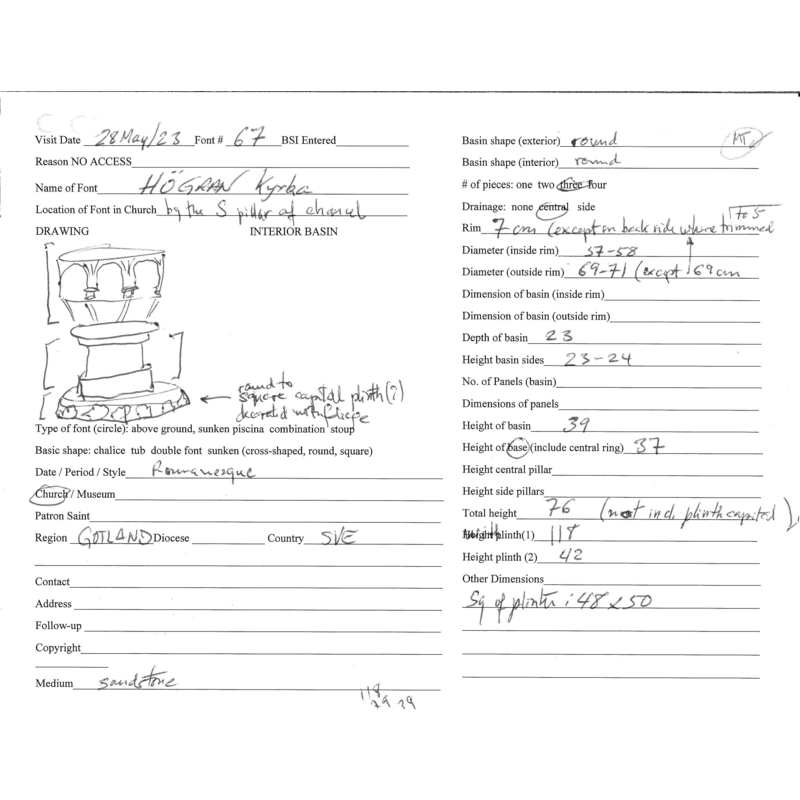 Visit Date 28 May/23 Font # 67 BSI Entered
Reason NO ACCESS
Name of Font HÖGRAN Kyrka
Location of Font in Church by the S pillar of chancel
DRAWING INTERIOR BASIN
round to
square capital plinth (?)
decorated with foliage
Type of font (circle): above ground, sunken piscina combination stoup
Basic shape: chalice tub double font sunken (cross-shaped, round, square)
Date / Period / Style Romanesque
Church / Museum
Patron Saint
Region GOTLAND Diocese Country SVE
Contact
Address
Follow-up
Copyright
Medium sandstone
118
29 29
Basin shape (exterior) round MT
Basin shape (interior) round
# of pieces: one two three four
Drainage: none central side
to 5
Rim 7 cm (except on back side where trimmed
Diameter (inside rim) 57-58
Diameter (outside rim) 69-71 (except 69 cm
Dimension of basin (inside rim)
Dimension of basin (outside rim)
Depth of basin 23
Height basin sides 23-24
No. of Panels (basin)
Dimensions of panels
Height of basin 39
Height of base (include central ring) 37
Height central pillar
Height side pillars
Total height 76 (not incl. plinth capital)
plinth(1) 118
Height plinth (2) 42
Other Dimensions
Sq of plinter : 48 x 50